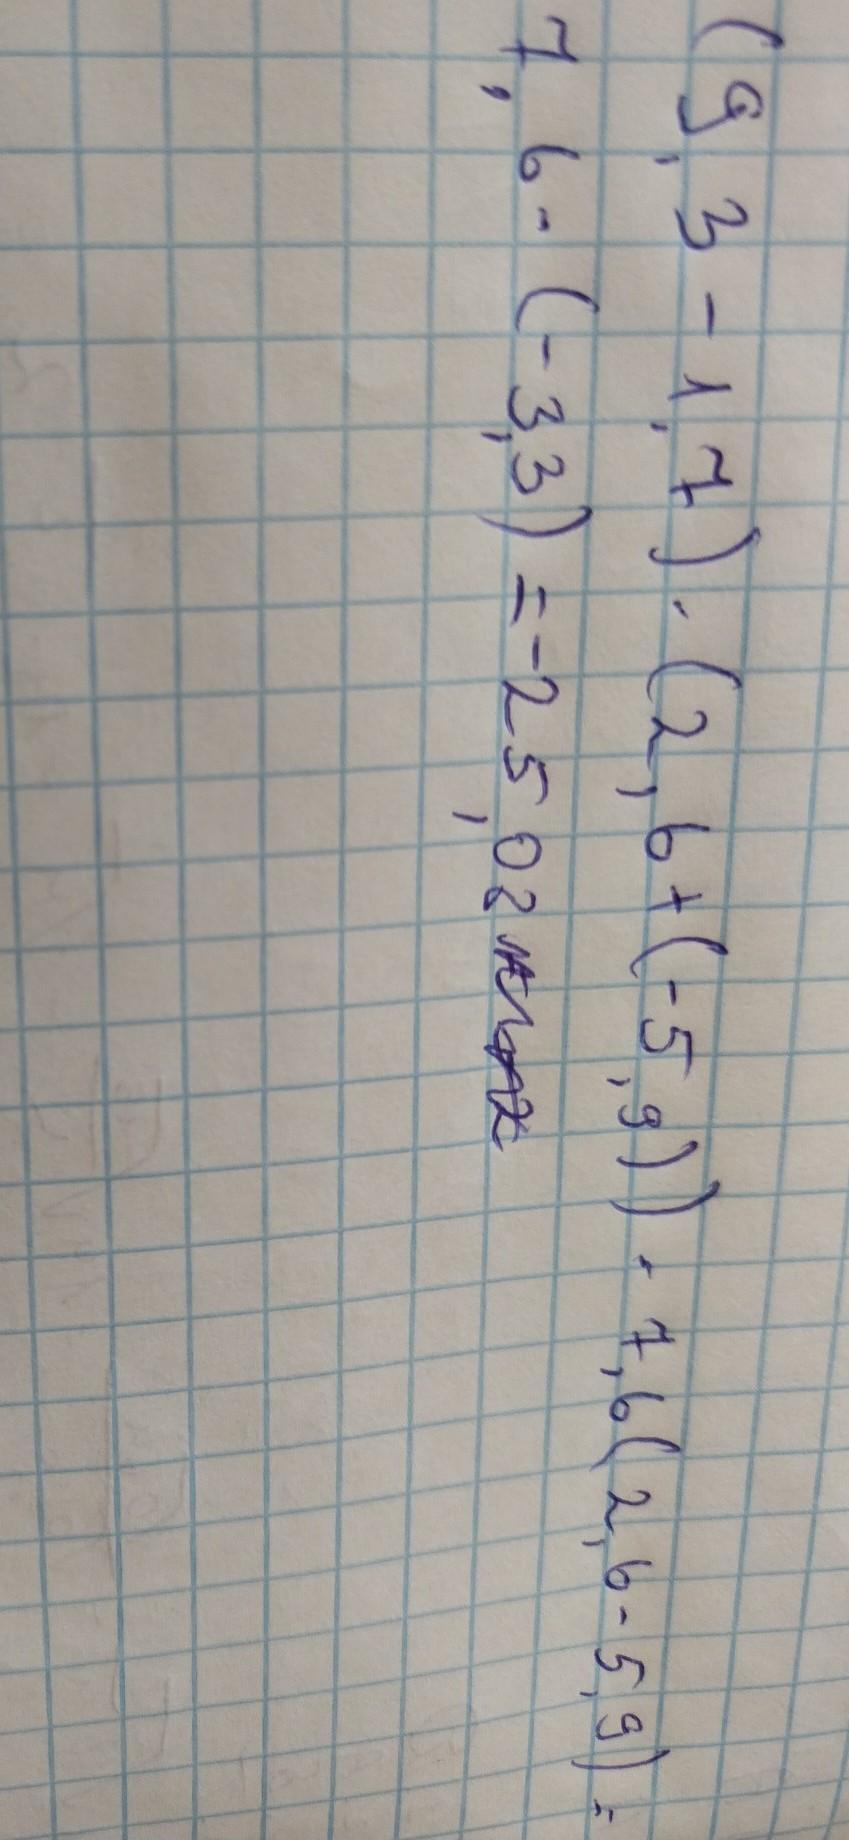 (9,3-1,7)·(2,6+(-5,9))=7,6(2,6-5,9)=
7,6·(-3,3)=-25,08